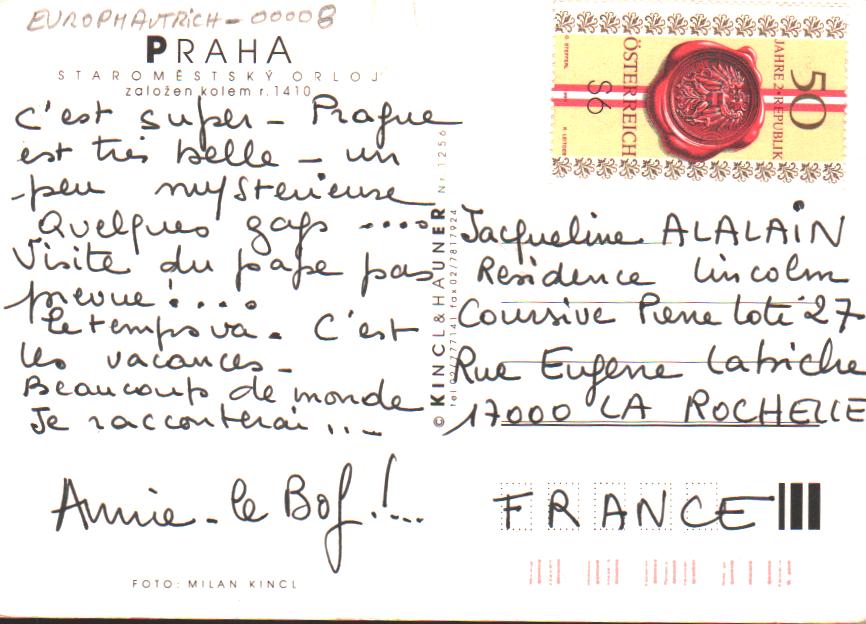 EUROPHAUTRICH-00008
PRAHA
STAROMĚSTSKÝ ORLOJ
založen kolem r. 1410
c'est super - Prague
est très belle - un
peu mystérieuse
Quelques gags ....
Visite du pape pas
prévue !...
Le temps va. C'est
les vacances -
Beaucoup de monde
Je racconterai ...
Annie - le Bof !...
FOTO: MILAN KINCL
© KINCL & HAUNER Nr. 1256
tel 02/777141 fax 02/7817924
50
JAHRE 2. REPUBLIK
ÖSTERREICH
S6
Jacqueline ALALAIN
Résidence Lincoln
Coursive Pierre Loti 27
Rue Eugène Labiche
17000 LA ROCHELLE
FRANCE